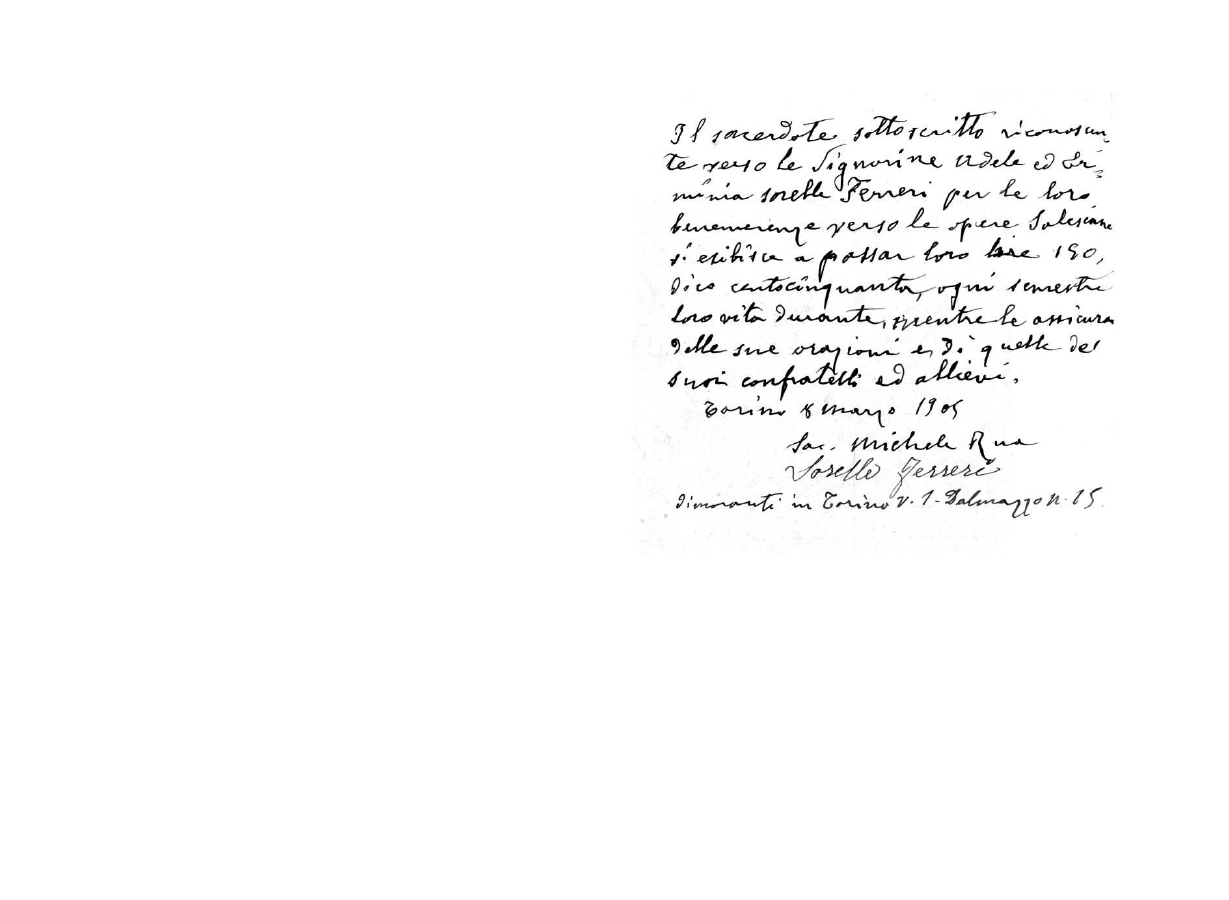 Il sacerdote sottoscritto riconoscen
te verso le Signorine Adele ed Er-
minia sorelle Ferreri per le loro
benemerenze verso le opere Salesiane
si esibisce a passar loro lire 150,
dico centocinquanta, ogni semestre
loro vita durante, mentre le assicura
delle sue orazioni e di quelle dei
suoi confratelli ed allievi.
Torino 8 marzo 1905
Sac. Michele Rua
Sorelle Ferreri
dimoranti in Torino v. S. Dalmazzo n. 15.